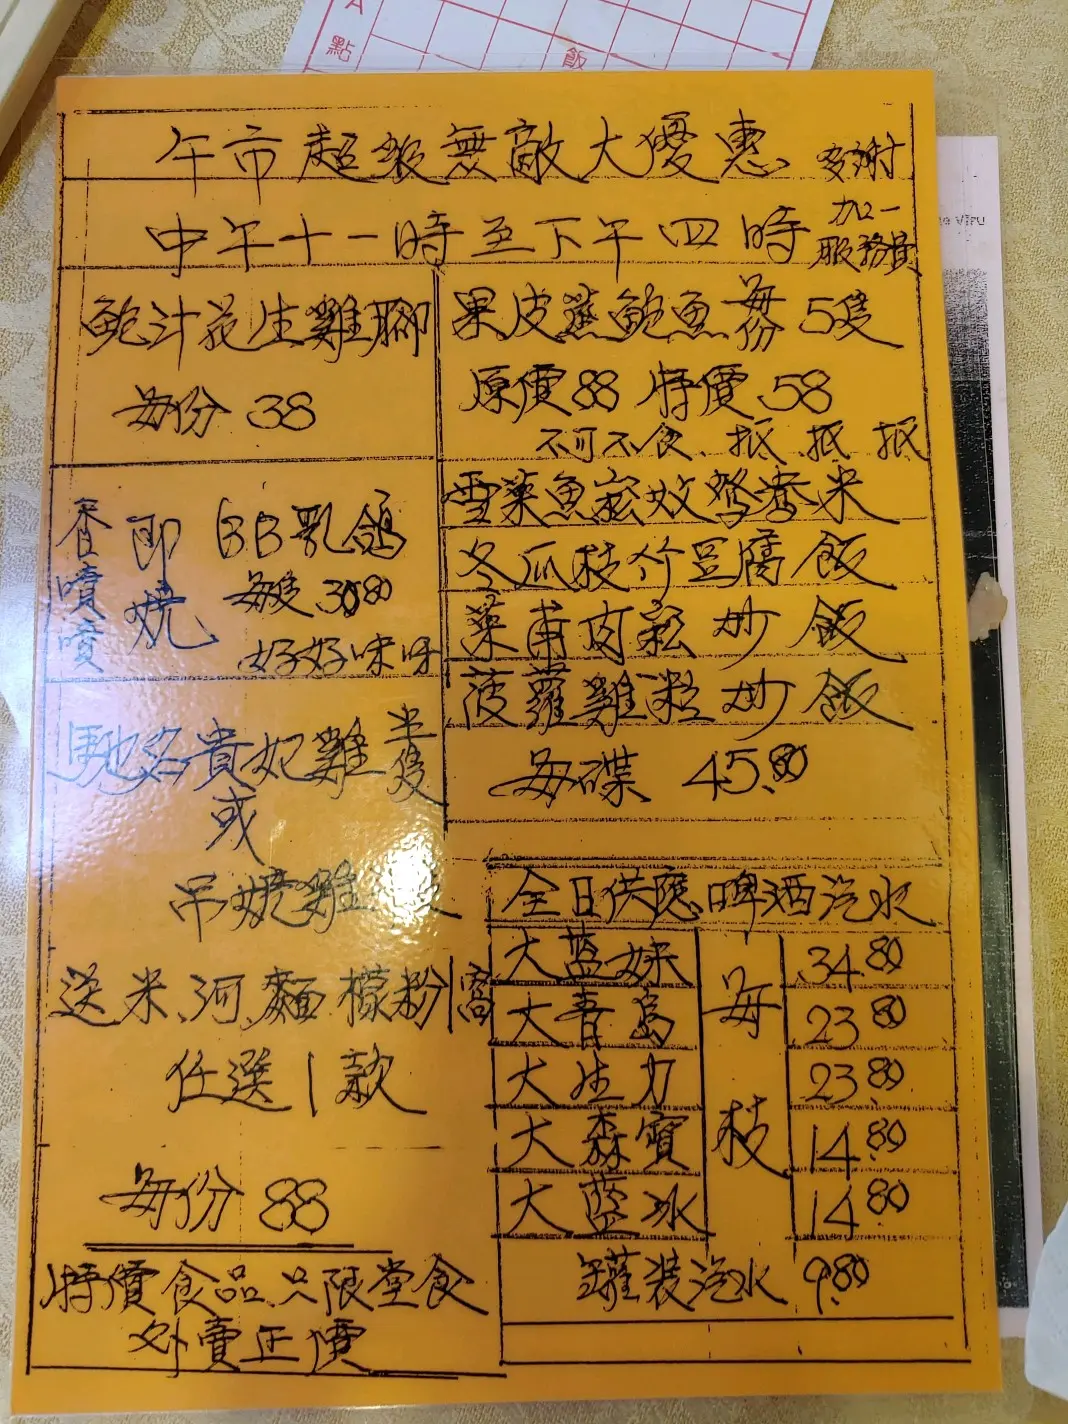 A
點
飯
午市超級無敵大優惠
多謝
加一
服務員
中午十一時至下午四時
鮑汁花生雞腳
每份 38
果皮蒸鮑魚每份5隻
原價88 特價58
不可不食、抵、抵、抵
香噴噴
即燒
BB乳鴿
每隻 30.80
好好味呀
雪菜魚崧炆鴛鴦米
冬瓜枝竹豆腐飯
菜甫肉崧炒飯
菠蘿雞粒炒飯
每碟 45.80
馳名貴妃雞半隻
或
吊燒雞
送米、河、麵、檬粉
任選1款
每份 88
特價食品、只限堂食
外賣正價
全日供應啤酒汽水
大藍妹 每枝 34.80
大青島 23.80
大生力 23.80
大森寶 14.80
大藍冰 14.80
罐裝汽水 9.80